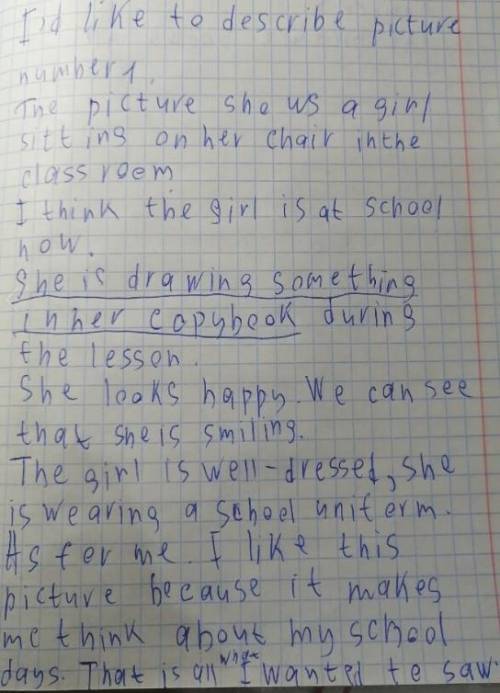 I'd like to describe picture
number 1.
The picture shows a girl
sitting on her chair in the
classroom
I think the girl is at school
now.
She is drawing something
in her copybook during
the lesson.
She looks happy. We can see
that she is smiling.
The girl is well-dressed, she
is wearing a school uniform.
As for me. I like this
picture because it makes
me think about my school
days. That is all what I wanted to saw.